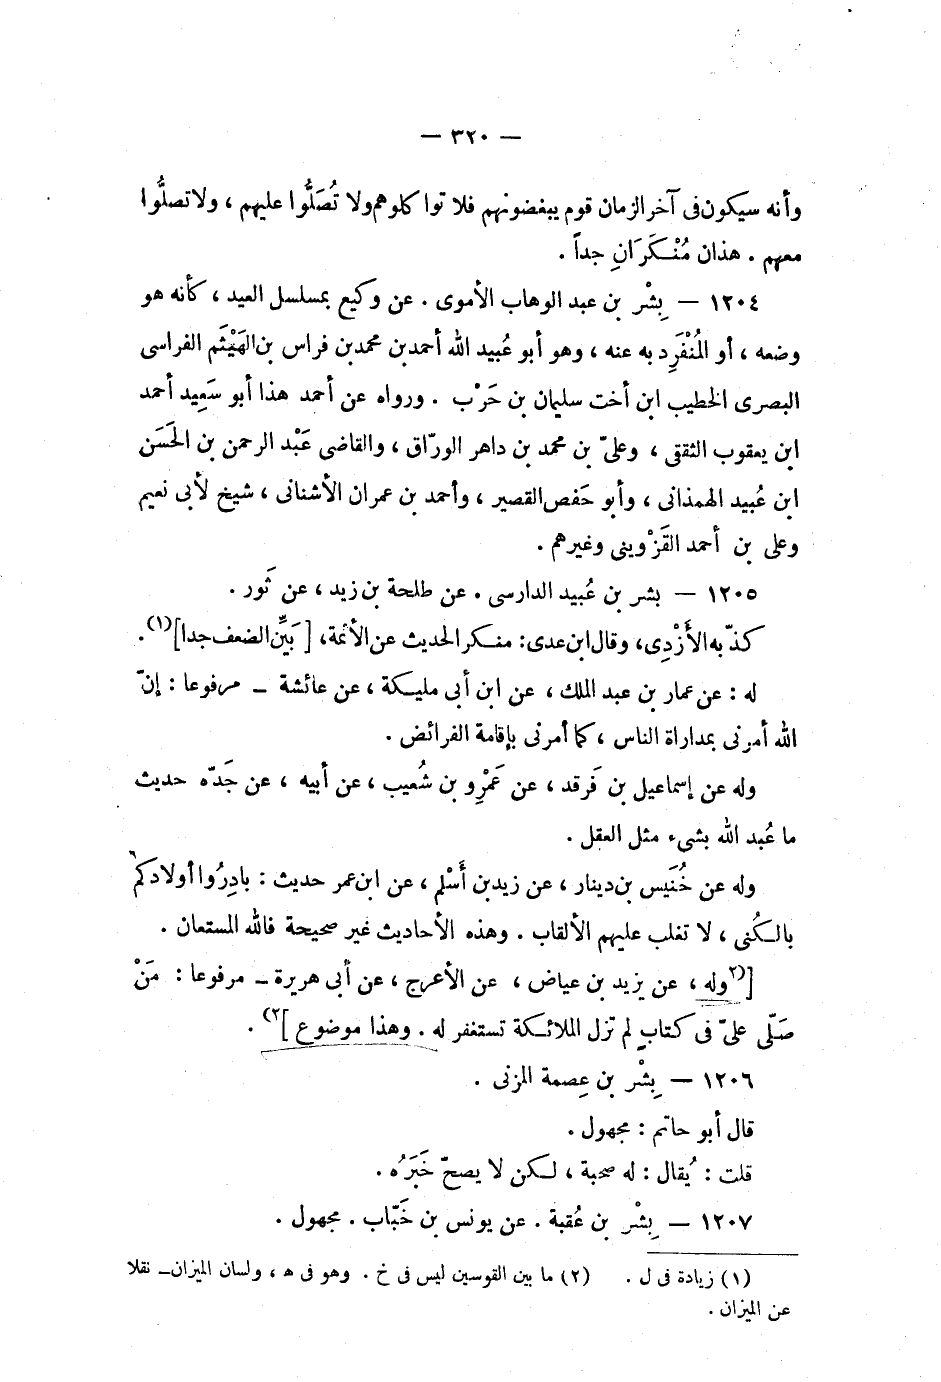 — ٣٢٠ —
وأنه سيكون فى آخر الزمان قوم يبغضونهم فلا تواكلوهم ولا تُصَلُّوا عليهم ، ولا تصلُّوا
معهم . هذان مُنْكَرَانِ جداً .
١٢٠٤ — بِشْر بن عبد الوهاب الأموى . عن وكيع بمسلسل العيد ، كأنه هو
وضعه ، أو المُنْفَرِد به عنه ، وهو أبو عُبيد الله أحمد بن محمد بن فراس بن الهَيْثَم الفراسى
البصرى الخطيب ابن أخت سليمان بن حَرْب . ورواه عن أحمد هذا أبو سَعِيد أحمد
ابن يعقوب الثقفى ، وعلىّ بن محمد بن داهر الورّاق ، والقاضى عَبْد الرحمن بن الحَسَن
ابن عُبيد الهمذانى ، وأبو حَفص القصير ، وأحمد بن عمران الأشنانى ، شيخ لأبى نعيم
وعلى بن أحمد القَزْوينى وغيرهم .
١٢٠٥ — بشر بن عُبيد الدارسى . عن طلحة بن زيد ، عن ثَور .
كذّبه الأَزْدِى ، وقال ابن عدى : منكر الحديث عن الأئمة ، [ بَيِّن الضعف جدا ](١) .
له : عن عمار بن عبد الملك ، عن ابن أبى مليكة ، عن عائشة – مرفوعا : إنّ
الله أمرنى بمداراة الناس ، كما أمرنى بإقامة الفرائض .
وله عن إسماعيل بن فَرقد ، عن عَمْرِو بن شُعيب ، عن أبيه ، عن جَدّه حديث
ما عُبد الله بشىء مثل العقل .
وله عن خُنَيس بن دينار ، عن زيد بن أَسْلم ، عن ابن عمر حديث : بادِرُوا أولادكم
بالكُنى ، لا تغلب عليهم الألقاب . وهذه الأحاديث غير صحيحة فالله المستعان .
[(٢ وله ، عن يزيد بن عياض ، عن الأعرج ، عن أبى هريرة – مرفوعا : مَنْ
صَلّى علىّ فى كتابٍ لم تزل الملائكة تستغفر له . وهذا موضوع ]٢) .
١٢٠٦ — بِشْر بن عِصمة المزنى .
قال أبو حاتم : مجهول .
قلت : يُقال : له صحبة ، لكن لا يصحّ خَبَرُه .
١٢٠٧ — بِشْر بن عُقبة . عن يونس بن خَبّاب . مجهول .
(١) زيادة فى ل . (٢) ما بين القوسين ليس فى خ . وهو فى ه ، ولسان الميزان – نقلا
عن الميزان .